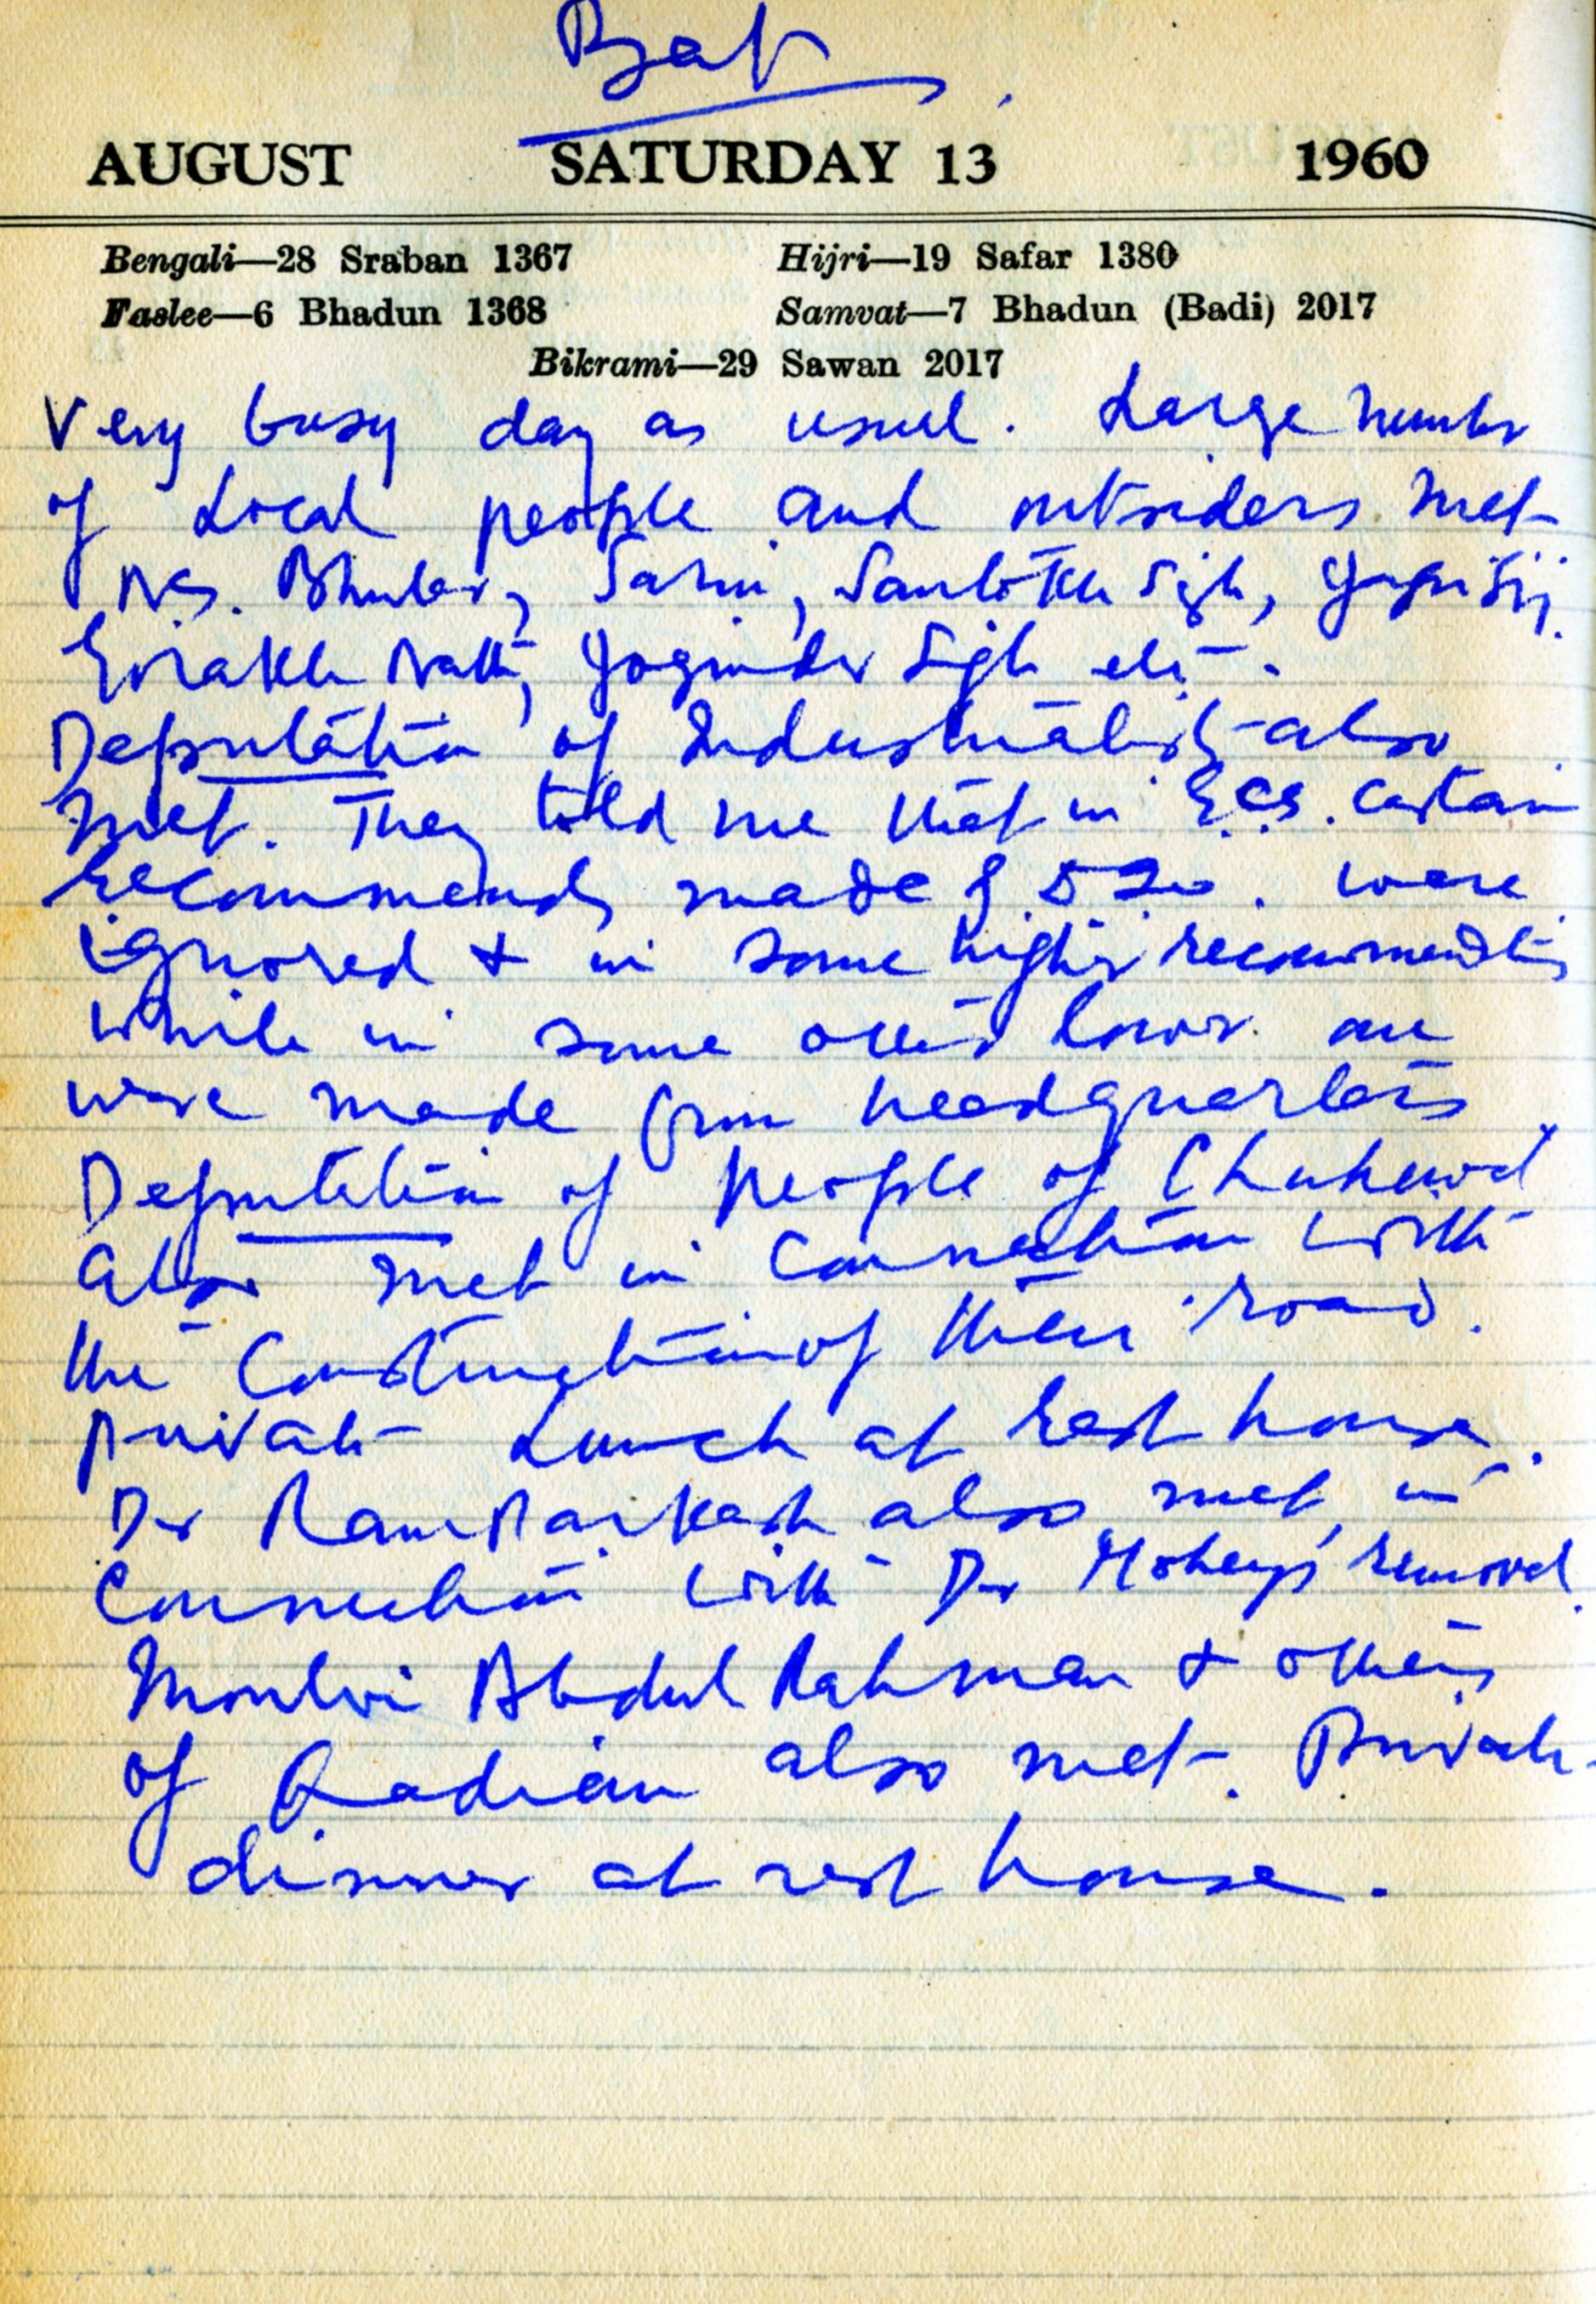 Bat
AUGUST SATURDAY 13 1960
Bengali—28 Sraban 1367 Hijri—19 Safar 1380
Faslee—6 Bhadun 1368 Samvat—7 Bhadun (Badi) 2017
Bikrami—29 Sawan 2017
Very busy day as usual. Large number
of Local people and outsiders met
Santokh Sigh,
Gorakh Nath, Joginder Sigh etc.
Deputation of Industrialists also
met. They told me that in certain
made were
ignored & in some higher recommendations
while in some others lower one
were made from headquarters
Deputation of People of
also met in Connection with
the Construction of their road.
private Lunch at Rest house.
Dr Ram Parkash also met in
Connection with Dr removal.
Moulvi Abdul Rahman & others
of Qadian also met. Private
dinner at rest house.